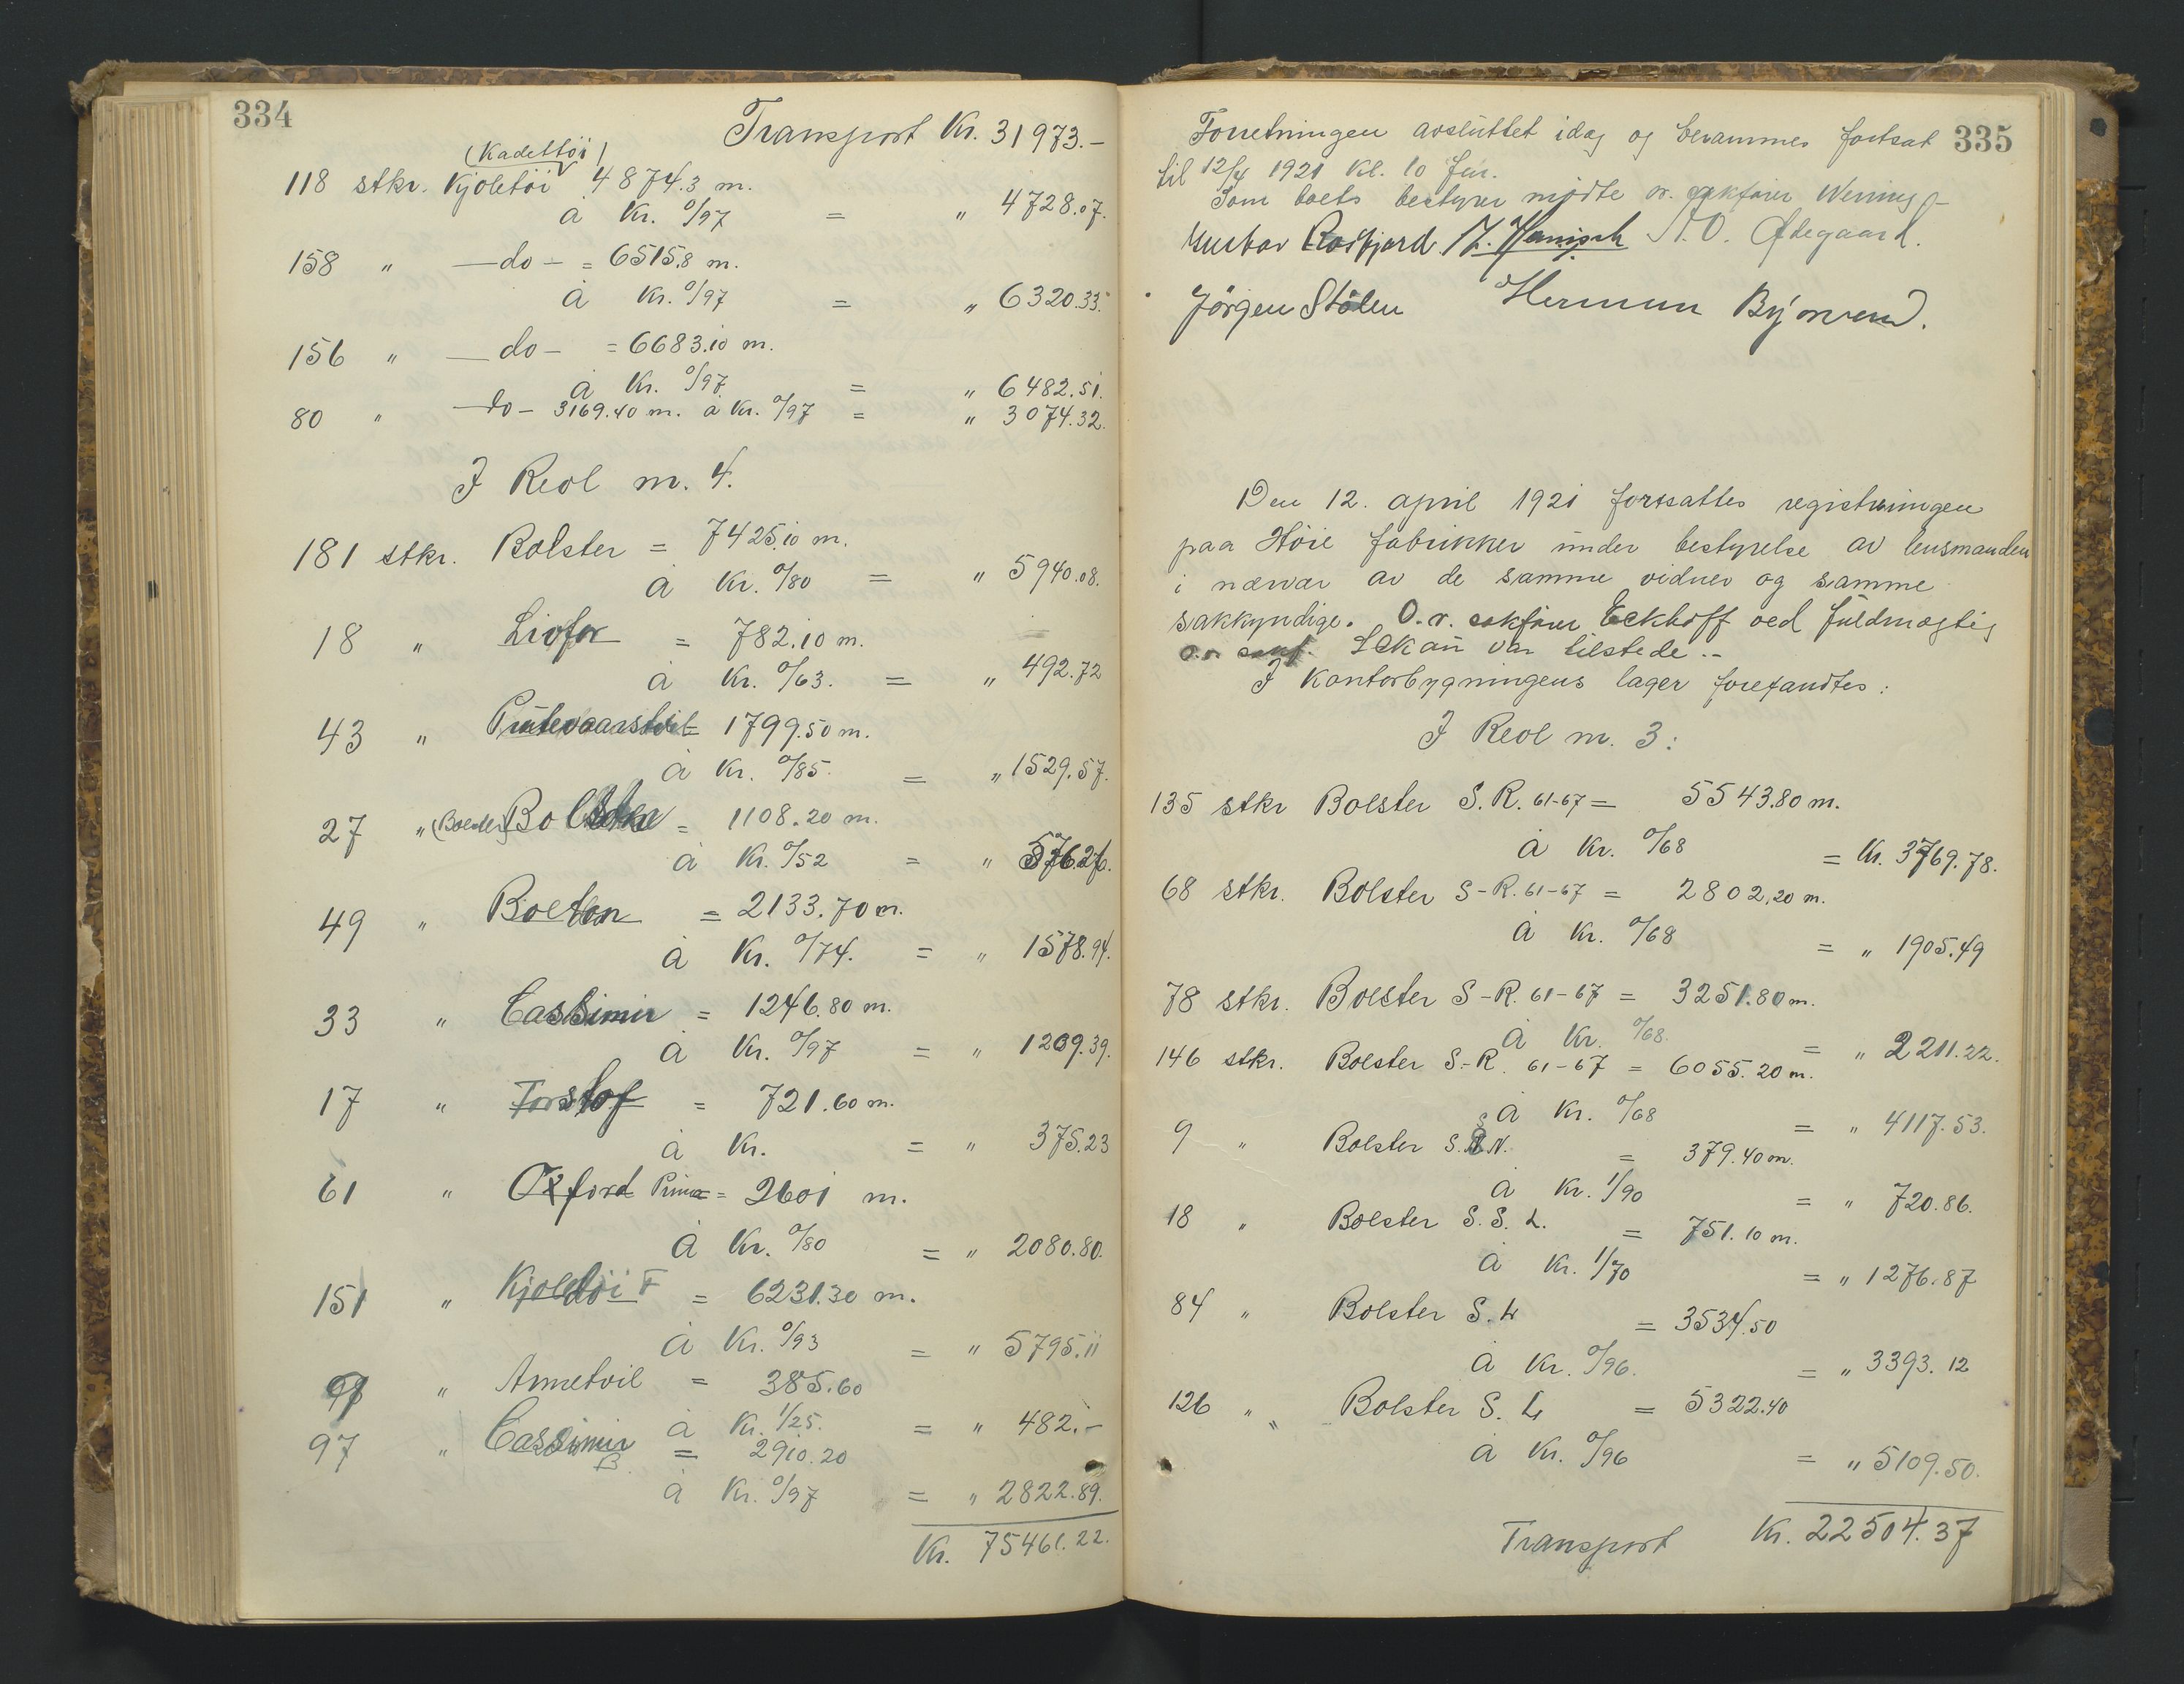 334
Transport Kr. 31973.-
(Kadettöi)
118 stkr. Kjoletöi 4874.3 m.
à Kr. 0/97 = " 4728.07.
158 " —do— = 6515.8 m.
à Kr. 0/97 = " 6320.33.
156 " —do— = 6683.10 m.
à Kr. 0/97 = " 6482.51.
80 " —do— 3169.40 m. à Kr. 0/97 = " 3074.32.
I Reol m. 4.
181 stkr. Bolster = 7425.10 m.
à Kr. 0/80 = " 5940.08.
18 " = 782.10 m.
à Kr. 0/63. = " 492.72
43 " = 1799.50 m.
à Kr. 0/85. = " 1529.57.
27 " = 1108.20 m.
à Kr. 0/52 = " 576.26.
49 " = 2133.70 m.
à Kr. 0/74. = " 1578.94.
33 " Cassimir = 1246.80 m.
à Kr. 0/97 = " 1209.39.
17 " Forstof = 721.60 m.
à Kr. = " 375.23
61 " Oxford Prima = 2601 m.
à Kr. 0/80 = " 2080.80.
151 " Kjoletöi F = 6231.30 m.
à Kr. 0/93 = " 5795.11
" = 385.60
à Kr. 1/25. = " 482.-
97 " Cassimir B = 2910.20
à Kr. 0/97 = " 2822.89.
Kr. 75461.22.
335
Forretningen avsluttet idag og berammes fortsat
til 12/4 1921 kl. 10 for.
Som boets bestyrer mödte or. sakförer
A. O. Ødegaard.
Jörgen Stölen Herman
Den 12. april 1921 fortsattes registreringen
paa Höie fabrikker under bestyrelse av lensmanden
i nærvær av de samme vidner og samme
sakkyndige. O.r. sakförer Eckhoff ved fuldmægtig
o.r. sakf. var tilstede.-
I Kontorbygningens lager forefandtes:
I Reol m. 3:
135 stkr Bolster S.R. 61-67 = 5543.80 m.
à Kr. 0/68 = Kr. 3769.78.
68 stkr. Bolster S-R. 61-67 = 2802.20 m.
à Kr. 0/68 = " 1905.49
78 stkr. Bolster S-R. 61-67 = 3251.80 m.
à Kr. 0/68. = " 2211.22.
146 stkr. Bolster S.-R. 61-67 = 6055.20 m.
à Kr. 0/68 = " 4117.53.
9 " Bolster S.S.N. = 379.40 m.
à Kr. 1/90 = " 720.86.
18 " Bolster S. S. L. = 751.10 m.
à Kr. 1/70 = " 1276.87
84 " Bolster S. L = 3534.50
à Kr. 0/96. = " 3393.12
126 " " Bolster S. L = 5322.40
à Kr. 0/96 = " 5109.50.
Transport Kr. 22504.37